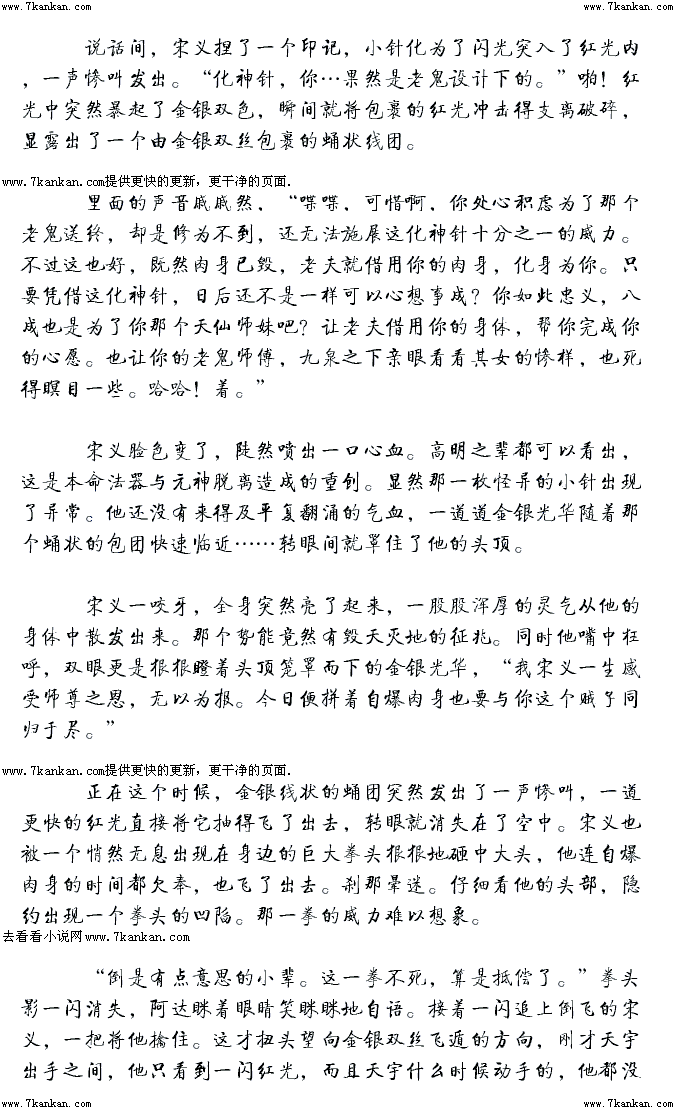 www.7kankan.com www.7kankan.com
说话间，宋义捏了一个印记，小针化为了闪光突入了红光内
，一声惨叫发出。“化神针，你…果然是老鬼设计下的。”啪！红
光中突然暴起了金银双色，瞬间就将包裹的红光冲击得支离破碎，
显露出了一个由金银双丝包裹的蛹状线团。
www.7kankan.com提供更快的更新，更干净的页面.
里面的声音戚戚然，“喋喋，可惜啊，你处心积虑为了那个
老鬼送终，却是修为不到，还无法施展这化神针十分之一的威力。
不过这也好，既然肉身已毁，老夫就借用你的肉身，化身为你。只
要凭借这化神针，日后还不是一样可以心想事成？你如此忠义，八
成也是为了你那个天仙师妹吧？让老夫借用你的身体，帮你完成你
的心愿。也让你的老鬼师傅，九泉之下亲眼看看其女的惨样，也死
得瞑目一些。哈哈！着。”
宋义脸色变了，陡然喷出一口心血。高明之辈都可以看出，
这是本命法器与元神脱离造成的重创。显然那一枚怪异的小针出现
了异常。他还没有来得及平复翻涌的气血，一道道金银光华随着那
个蛹状的包团快速临近……转眼间就罩住了他的头顶。
宋义一咬牙，全身突然亮了起来，一股股浑厚的灵气从他的
身体中散发出来。那个势能竟然有毁天灭地的征兆。同时他嘴中狂
呼，双眼更是狠狠瞪着头顶笼罩而下的金银光华，“我宋义一生感
受师尊之恩，无以为报。今日便拼着自爆肉身也要与你这个贼子同
归于尽。”
www.7kankan.com提供更快的更新，更干净的页面.
正在这个时候，金银线状的蛹团突然发出了一声惨叫，一道
更快的红光直接将它抽得飞了出去，转眼就消失在了空中。宋义也
被一个悄然无息出现在身边的巨大拳头狠狠地砸中大头，他连自爆
肉身的时间都欠奉，也飞了出去。刹那晕迷。仔细看他的头部，隐
约出现一个拳头的凹陷。那一拳的威力难以想象。
去看看小说网www.7kankan.com
“倒是有点意思的小辈。这一拳不死，算是抵偿了。”拳头
影一闪消失，阿达眯着眼睛笑眯眯地自语。接着一闪追上倒飞的宋
义，一把将他擒住。这才扭头望向金银双丝飞遁的方向，刚才天宇
出手之间，他只看到一闪红光，而且天宇什么时候动手的，他都没
www.7kankan.com www.7kankan.com